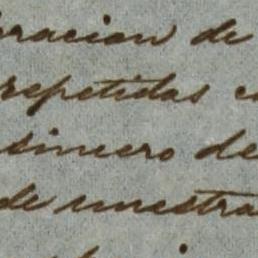 racion de
repetidas
sincero de
de nuestra